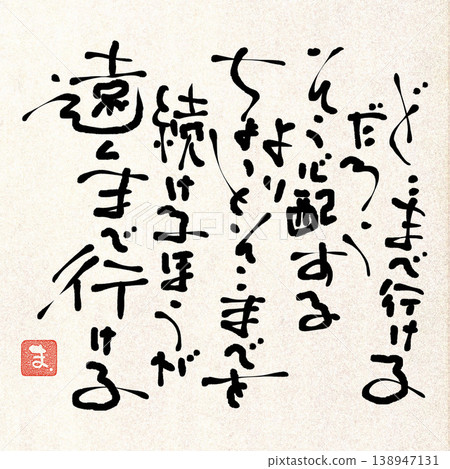 どこまで行ける
だろう
そう心配する
より
ちょっとそこまでを
続けるほうが
遠くまで行ける
ま
PIXTA
138947131